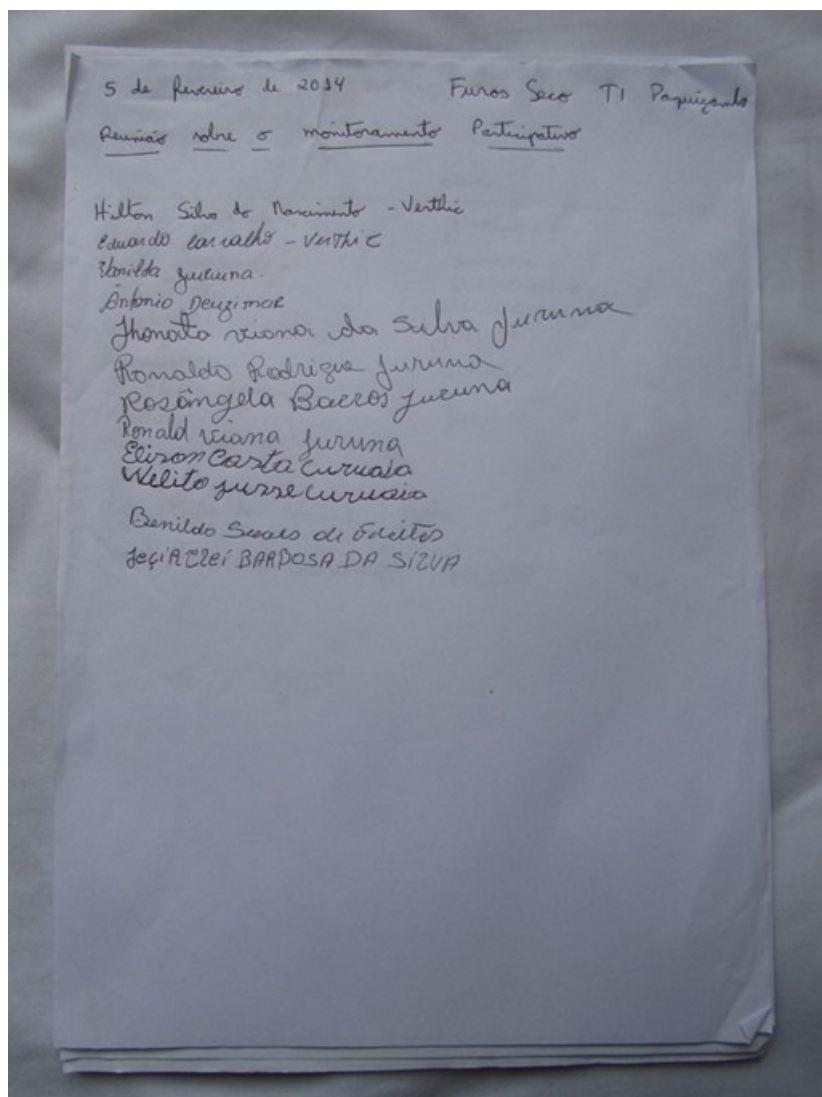 5 de fevereiro de 2014 Furos Seco TI Paquiçamba
Reunião sobre o monitoramento Participativo
Hilton Silva do Nascimento - Verthic
Eduardo Carvalho - Verthic
Juruna.
Antonio Deuzimar
Jhonata viana da Silva Juruna
Ronaldo Rodrigue Juruna
Rosângela Barros Juruna
Ronald viana Juruna
Elison Costa Curuaia
Welito Curuaia
Benildo de
BARBOSA DA SiLVA